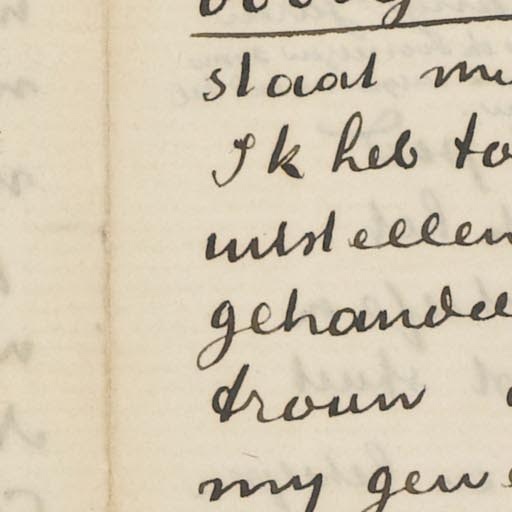 staat
Ik heb to
uitstellen
gehandel
troun
my gew